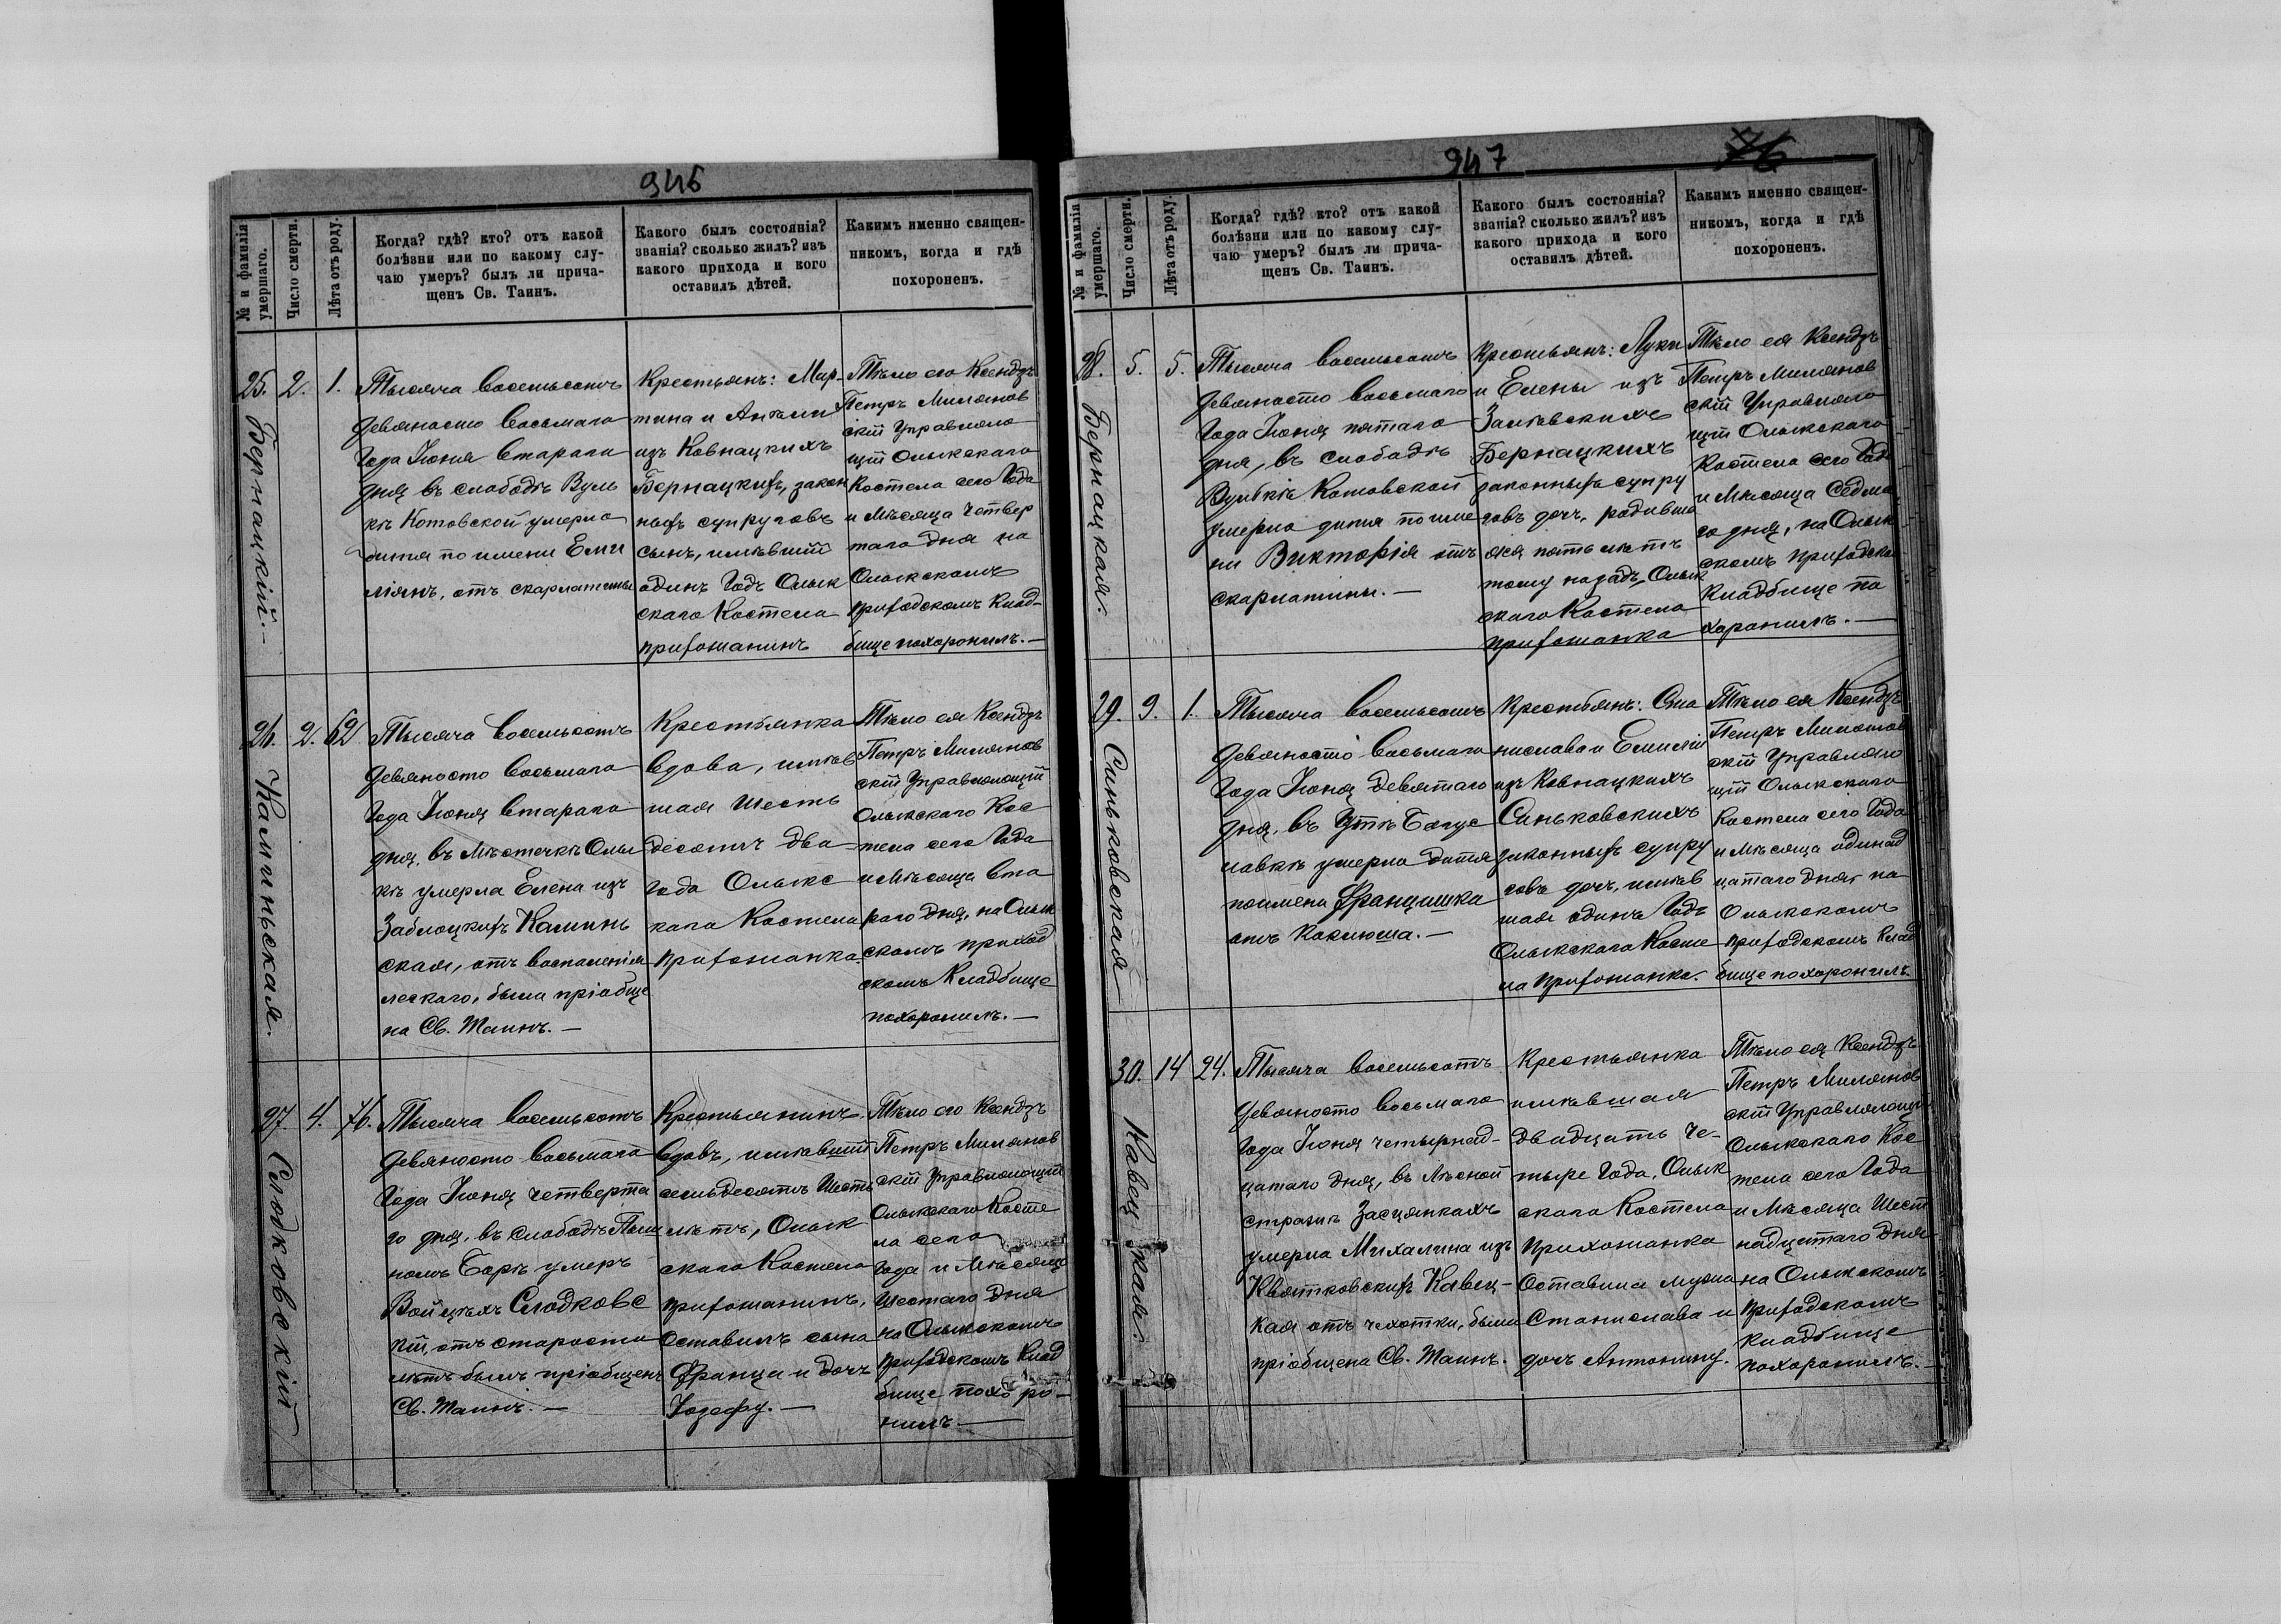 946
№ и фамилія умершаго.
Число смерти.
Лѣта отъ роду.
Когда? гдѣ? кто? отъ какой
болѣзни или по какому слу-
чаю умеръ? былъ ли прича-
щенъ Св. Таинъ.
Какого былъ состоянія?
званія? сколько жилъ? изъ
какого прихода и кого
оставилъ дѣтей.
Какимъ именно священ-
никомъ, когда и гдѣ
похороненъ.
25.
Бернацкій.-
2.
1.
Тысяча восемьсотъ
девяносто восьмаго
Года Іюня втораго
дня въ слободѣ Вуль
кѣ Котовской умерло
дитя по имени Еми
ліянъ, отъ скарлатины
Крестьянъ: Мар-
тина и Ангели
изъ Ковнацкихъ
Бернацкихъ, закон
ныхъ супруговъ
сынъ, имѣвшій
одинъ Годъ Олык
скаго Костела
прихожанинъ
Тѣло его Ксендзъ
Петръ Миляновскій
скій Управляю
щій Олыкскаго
Костела сего Года
и Мѣсяца Четвер
таго дня на
Олыкскомъ
приходскомъ клад-
бище похоронилъ.—
26.
Каминьская.
2.
62
Тысяча восемьсотъ
девяносто восьмаго
Года Іюня втораго
дня, въ Мѣстечкѣ Олы
кѣ умерла Елена изъ
Заблоцкихъ Каминь
ская, отъ воспаленія
легкаго, была пріобще
на Св. Таинъ.—
Крестьянка
вдова, имѣв
шая шесть
десятъ два
года Олыкс
каго Костела
прихожанка.
Тѣло ея Ксендзъ
Петръ Милянов
скій Управляющій
Олыкскаго Кос
тела сего Года
и Мѣсяца Вто
раго дня, на Олык
скомъ приход
скомъ Кладбище
похоронилъ.—
27.
Слодковскій
4.
76.
Тысяча восемьсотъ
девяносто восьмаго
Года Іюня четверта
го дня, въ слободѣ
номъ Борѣ умеръ
Войцѣхъ Слодковс
кій, отъ старости
лѣтъ былъ пріобщенъ
Св. Таинъ.—
Крестьянинъ
вдовъ, имѣвшій
семьдесятъ Шесть
лѣтъ, Олык
скаго Костела
прихожанинъ,
Оставилъ сына
Франца и дочь
Юзефу.—
Тѣло его Ксендзъ
Петръ Милянов
скій Управляющій
Олыкскаго Косте
ла сего
Года и Мѣсяца
Шестаго Дня
на Олыкскомъ
приходскомъ Клад
бище похо ро-
нилъ—
947
76
№ и фамилія умершаго.
Число смерти.
Лѣта отъ роду.
Когда? гдѣ? кто? отъ какой
болѣзни или по какому слу-
чаю умеръ? былъ ли прича-
щенъ Св. Таинъ.
Какого былъ состоянія?
званія? сколько жилъ? изъ
какого прихода и кого
оставилъ дѣтей.
Какимъ именно священ-
никомъ, когда и гдѣ
похороненъ.
28.
Бернацкая.
5.
5.
Тысяча восемьсотъ
девяносто восьмаго
Года Іюня пятаго
дня, въ слободѣ
Вулькѣ Котовской
умерло дитя по име
ни Викторія отъ
скарлатины.—
Крестьянъ: Луки
и Елены изъ
Бернацкихъ
законныхъ супру
говъ дочь, родивша
яся пять лѣтъ
тому назадъ, Олык
скаго Костела
прихожанка
Тѣло ея Ксендзъ
Петръ Милянов
скій Управляю
щій Олыкскаго
Костела сего Года
и Мѣсяца Седма
го дня, на Олык
скомъ приходско
Кладбище по
хоронилъ.—
29.
Синьковская
9.
1.
Тысяча восемьсотъ
девяносто восьмаго
Года Іюня девятаго
дня, въ
лавкѣ умерло дитя
по имени Францишка
отъ Коклюша.—
Крестьянъ: Ста
нислава и Емиліи
изъ Ковнацкихъ
Синьковскихъ
законныхъ супру
говъ дочь, имѣв
шая одинъ Годъ
Олыкскаго Косте
ла прихожанка.
Тѣло ея Ксендзъ
Петръ Милянов
скій Управляю
щій Олыкскаго
Костела сего Года
и Мѣсяца одинад
цатаго дня, на
Олыкскомъ
приходскомъ Клад
бище похоронилъ.
30.
Кавецкая.
14
24.
Тысяча восемьсотъ
девяносто восьмаго
Года Іюня четырнад-
цатаго дня, въ Лѣсной
стражѣ Засцянкахъ
умерла Михалина изъ
Квятковскихъ Кавец-
кая отъ чехотки, была
пріобщена Св. Таинъ.
Крестьянка
имѣвшая
двадцать че-
тыре Года, Олык
скаго Костела
прихожанка
Оставила мужа
Станислава и
дочь Антонину.
Тѣло ея Ксендзъ
Петръ Милянов
скій Управляющій
Олыкскаго Кос
тела сего Года
и Мѣсяца Шест
надцатаго дня
на Олыкскомъ
приходскомъ
кладбище
похоронилъ.—